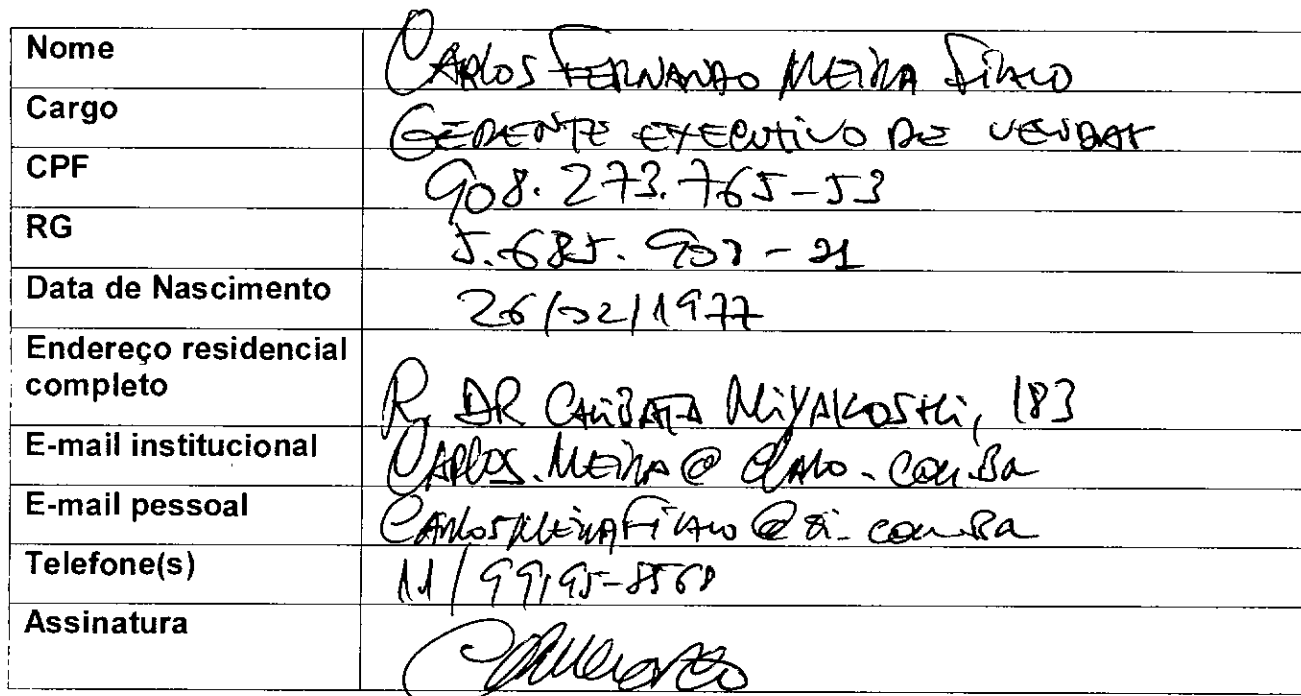 Nome CARLOS FERNANDO MEIRA FILHO
Cargo GERENTE EXECUTIVO DE VENDAS
CPF 908.273.765-53
RG 5.685.907-21
Data de Nascimento 26/02/1977
Endereço residencial
completo R. DR MIYAKOSHI, 183
E-mail institucional CARLOS.MEIRA@CLARO.COM.BR
E-mail pessoal CARLOSMEIRAFILHO@
Telefone(s) 11/
Assinatura